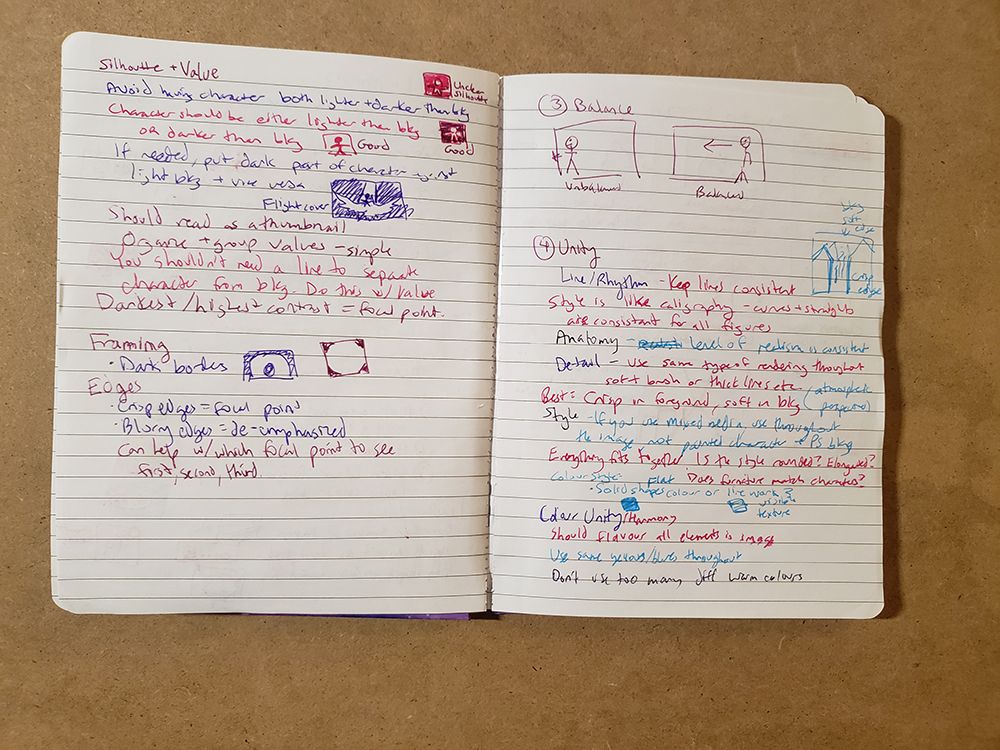 Silhoutte + Value
Unclear
Silhoutte
Avoid having character both lighter + darker than bkg
Character should be either lighter than bkg
or darker than bkg
Good
Good
If needed, put dark part of character against
light bkg + vice versa
Flight cover
Should read as a thumbnail
Organize + group values - simple
You shouldn't need a line to separate
character from bkg. Do this w/ value
Darkest/highest contrast = focal point.
Framing
· Dark borders
Edges
· Crisp edges = focal point
· Blurry edges = de-emphasized
Can help w/ which focal point to see
first, second, third
3 Balance
Unbalanced
Balanced
soft
edge
crisp
edge
4 Unity
Line/Rhythm - Keep lines consistent
Style is like caligraphy - curves + straights
are consistant for all figures
Anatomy - level of realism is consistent
Detail - use same type of rendering throughout
soft brush or thick lines etc.
Best = Crisp in foreground, soft in bkg (atmospheric
perspective)
Style - If you use mixed media, use throughout
the image not painted character + PS bkg
Everything fits together. Is the style rounded? Elongated?
Colour Style: Flat Does furniture match characters?
· Solid shapes colour or line work &
visible
texture
Colour Unity/Harmony
Should flavour all elements in image
Use same yellows/blues throughout
Don't use too many diff warm colours